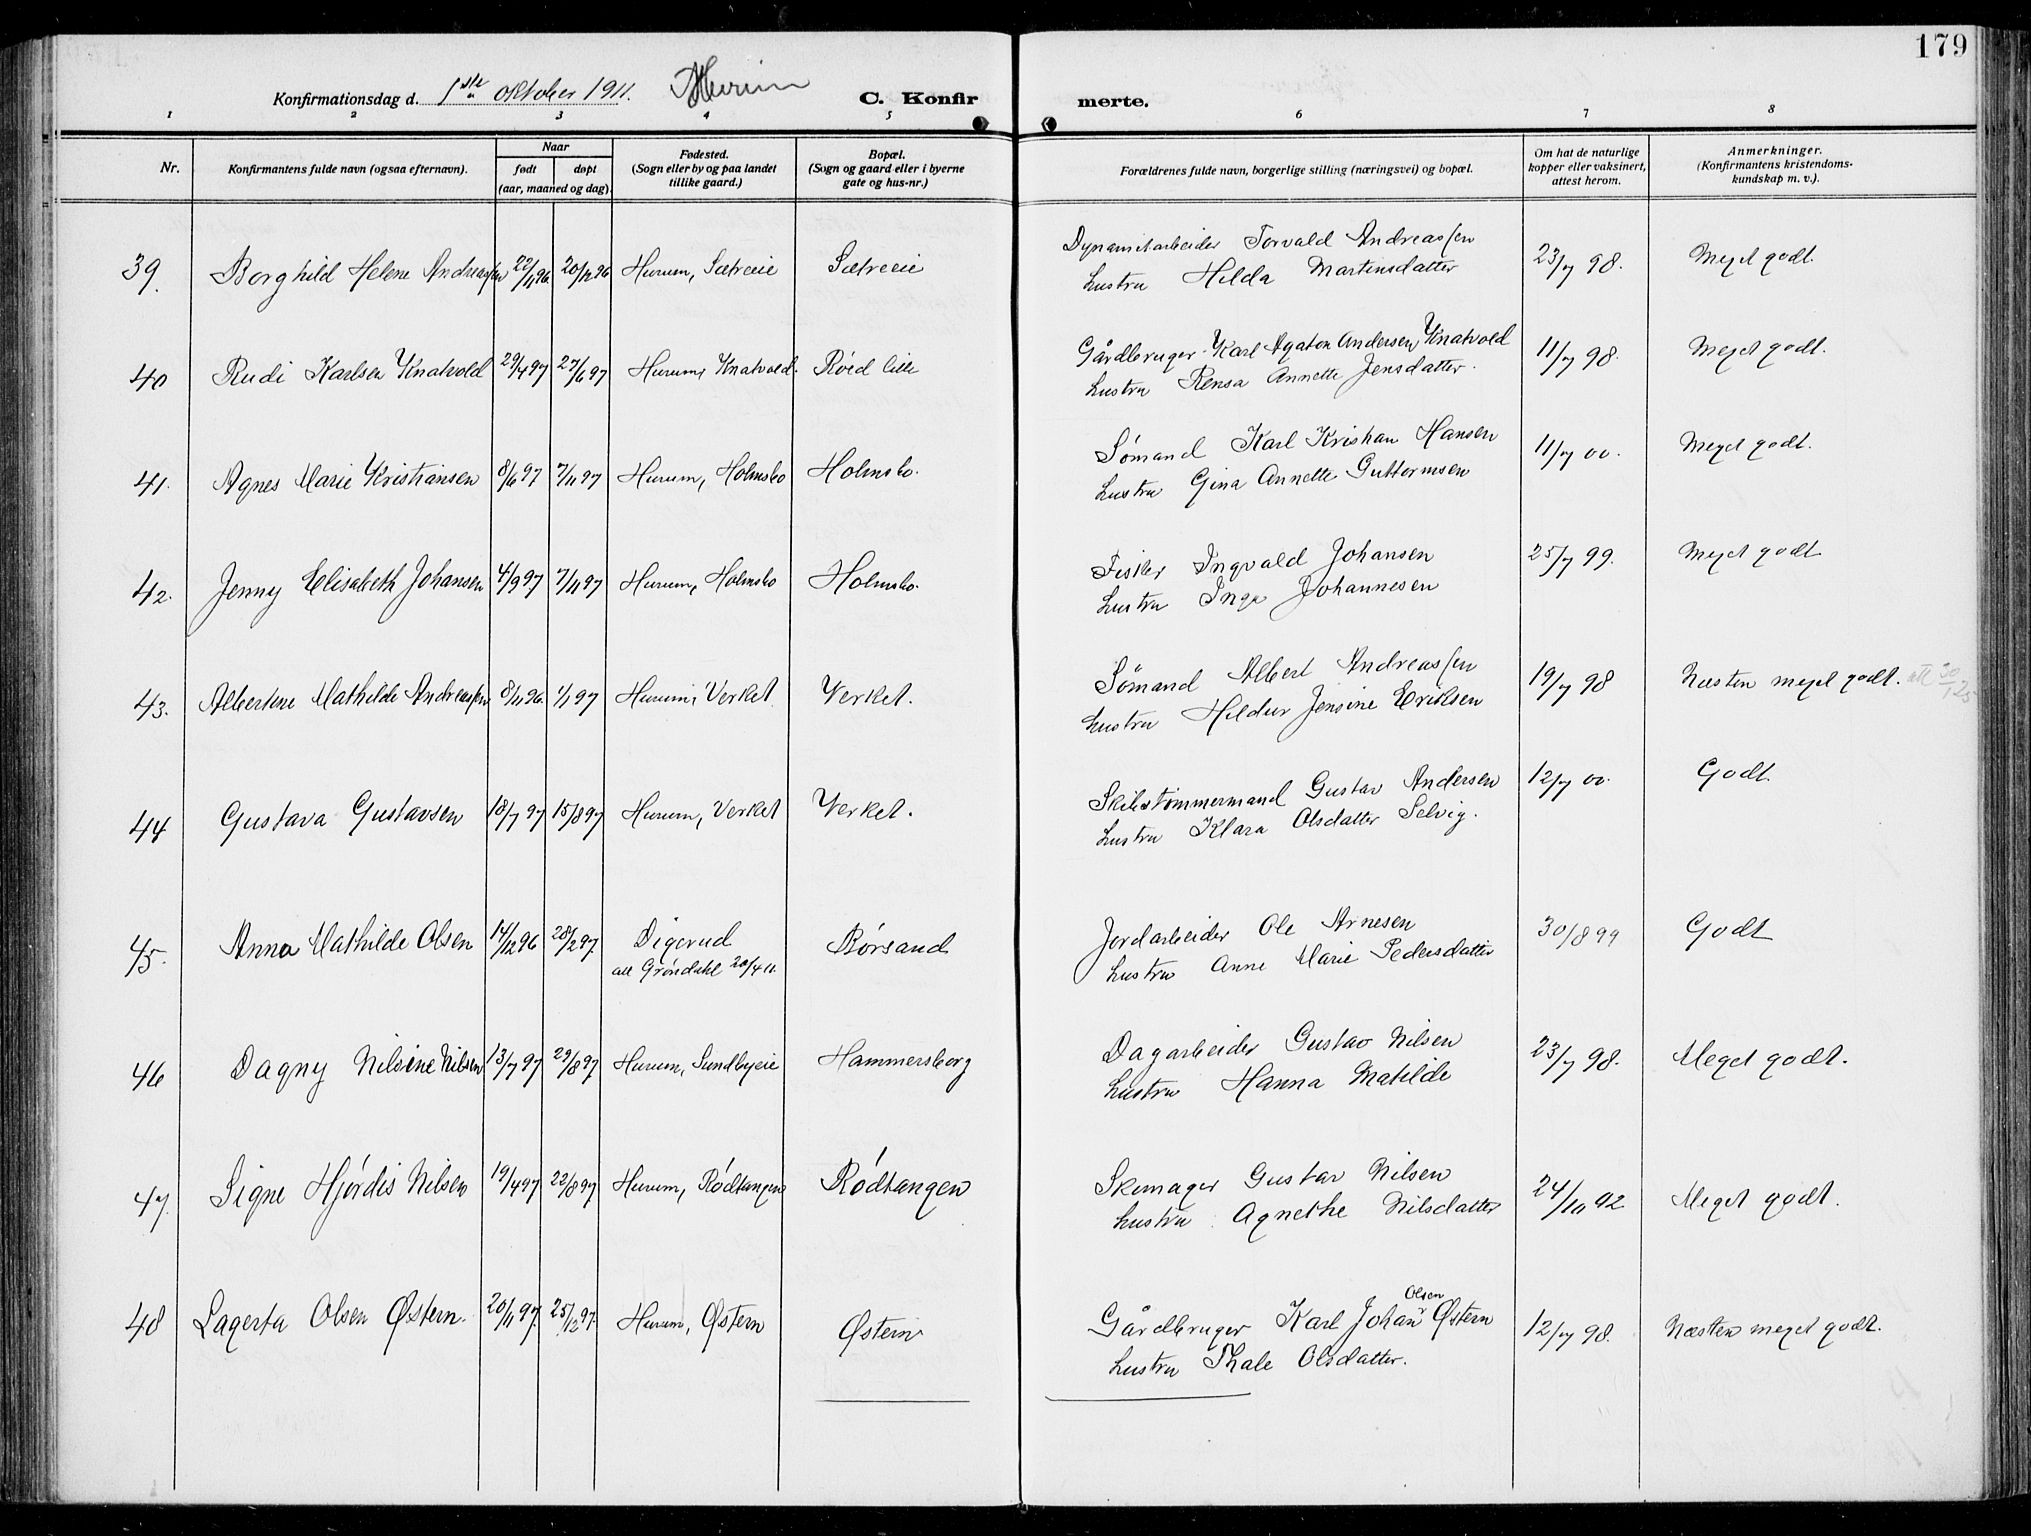 179
Konfirmationsdag d. 1ste oktober 1911. Hurum C. Konfirmerte.
1 2 3 4 5 6 7 8
Nr. Konfirmantens fulde navn (ogsaa efternavn). Naar født døpt (aar, maaned og dag). Fødested. (Sogn eller by og paa landet tillike gaard.) Bopæl. (Sogn og gaard eller i byerne gate og hus-nr.) Forældrenes fulde navn, borgerlige stilling (næringsvei) og bopæl. Om hat de naturlige kopper eller vaksinert, attest herom. Anmerkninger. (Konfirmantens kristendomskundskap m. v.).
39. Borghild Helene Andreassen 22/11 96. 20/12 96 Hurum, Sætreeie Sætreeie Dynamitarbeider Torvald Andreassen 23/7 98. Meget godt.
Hustru Hilda Martinsdatter
40 Rudi Karlsen Knatvold 29/4 97 27/6 97 Hurum, Knatvold. Røed lille Gårdbruger Karl Agaton Andersen Knatvold 11/7 98. Meget godt.
Hustru Rensa Annette Jensdatter.
41. Agnes Marie Kristiansen 8/6 97 7/11 97 Hurum, Holmsbo Holmsbo. Sømand Karl Kristian Hansen 11/7 00. Meget godt.
Hustru Gina Annette Guttormsen
42. Jenny Elisabeth Johansen 4/9 97 7/11 97 Hurum, Holmsbo Holmsbo. Fisker Ingvald Johansen 25/7 99. Meget godt
Hustru Inga Johannesen
43. Albertine Mathilde Andreassen 8/11 96. 1/1 97 Hurum, Verket Verket. Sømand Albert Andreassen 19/7 98 Næsten meget godt. att 30/1 25
Hustru Hildur Jensine Eriksen
44 Gustava Gustavsen 18/7 97 15/8 97 Hurum, Verket Verket. Skibstømmermand Gustav Andersen 12/7 00. Godt.
Hustru Klara Olsdatter Selvig.
45. Anna Mathilde Olsen 14/12 96 28/2 97. Digerud Rørsand Jordarbeider Ole Arnesen 30/8 99 Godt
att Grøndahl 20/4 11. Hustru Anne Marie Pedersdatter
46 Dagny Nilsine Nilsen 13/7 97 29/8 97 Hurum, Sundbyeie Hammersborg Dagarbeider Gustav Nilsen 23/7 98. Meget godt.
Hustru Hanna Matilde
47. Signe Hjørdis Nilsen 19/4 97 22/8 97 Hurum, Rødtangen Rødtangen Skomager Gustav Nilsen 24/10 92 Meget godt.
Hustru Agnethe Nilsdatter
48 Lagerta Olsen Østern. 20/11 97. 25/12 97. Hurum, Østern Østern Gårdbruger Karl Johan Olsen Østern 12/7 98. Næsten meget godt.
Hustru Thale Olsdatter.